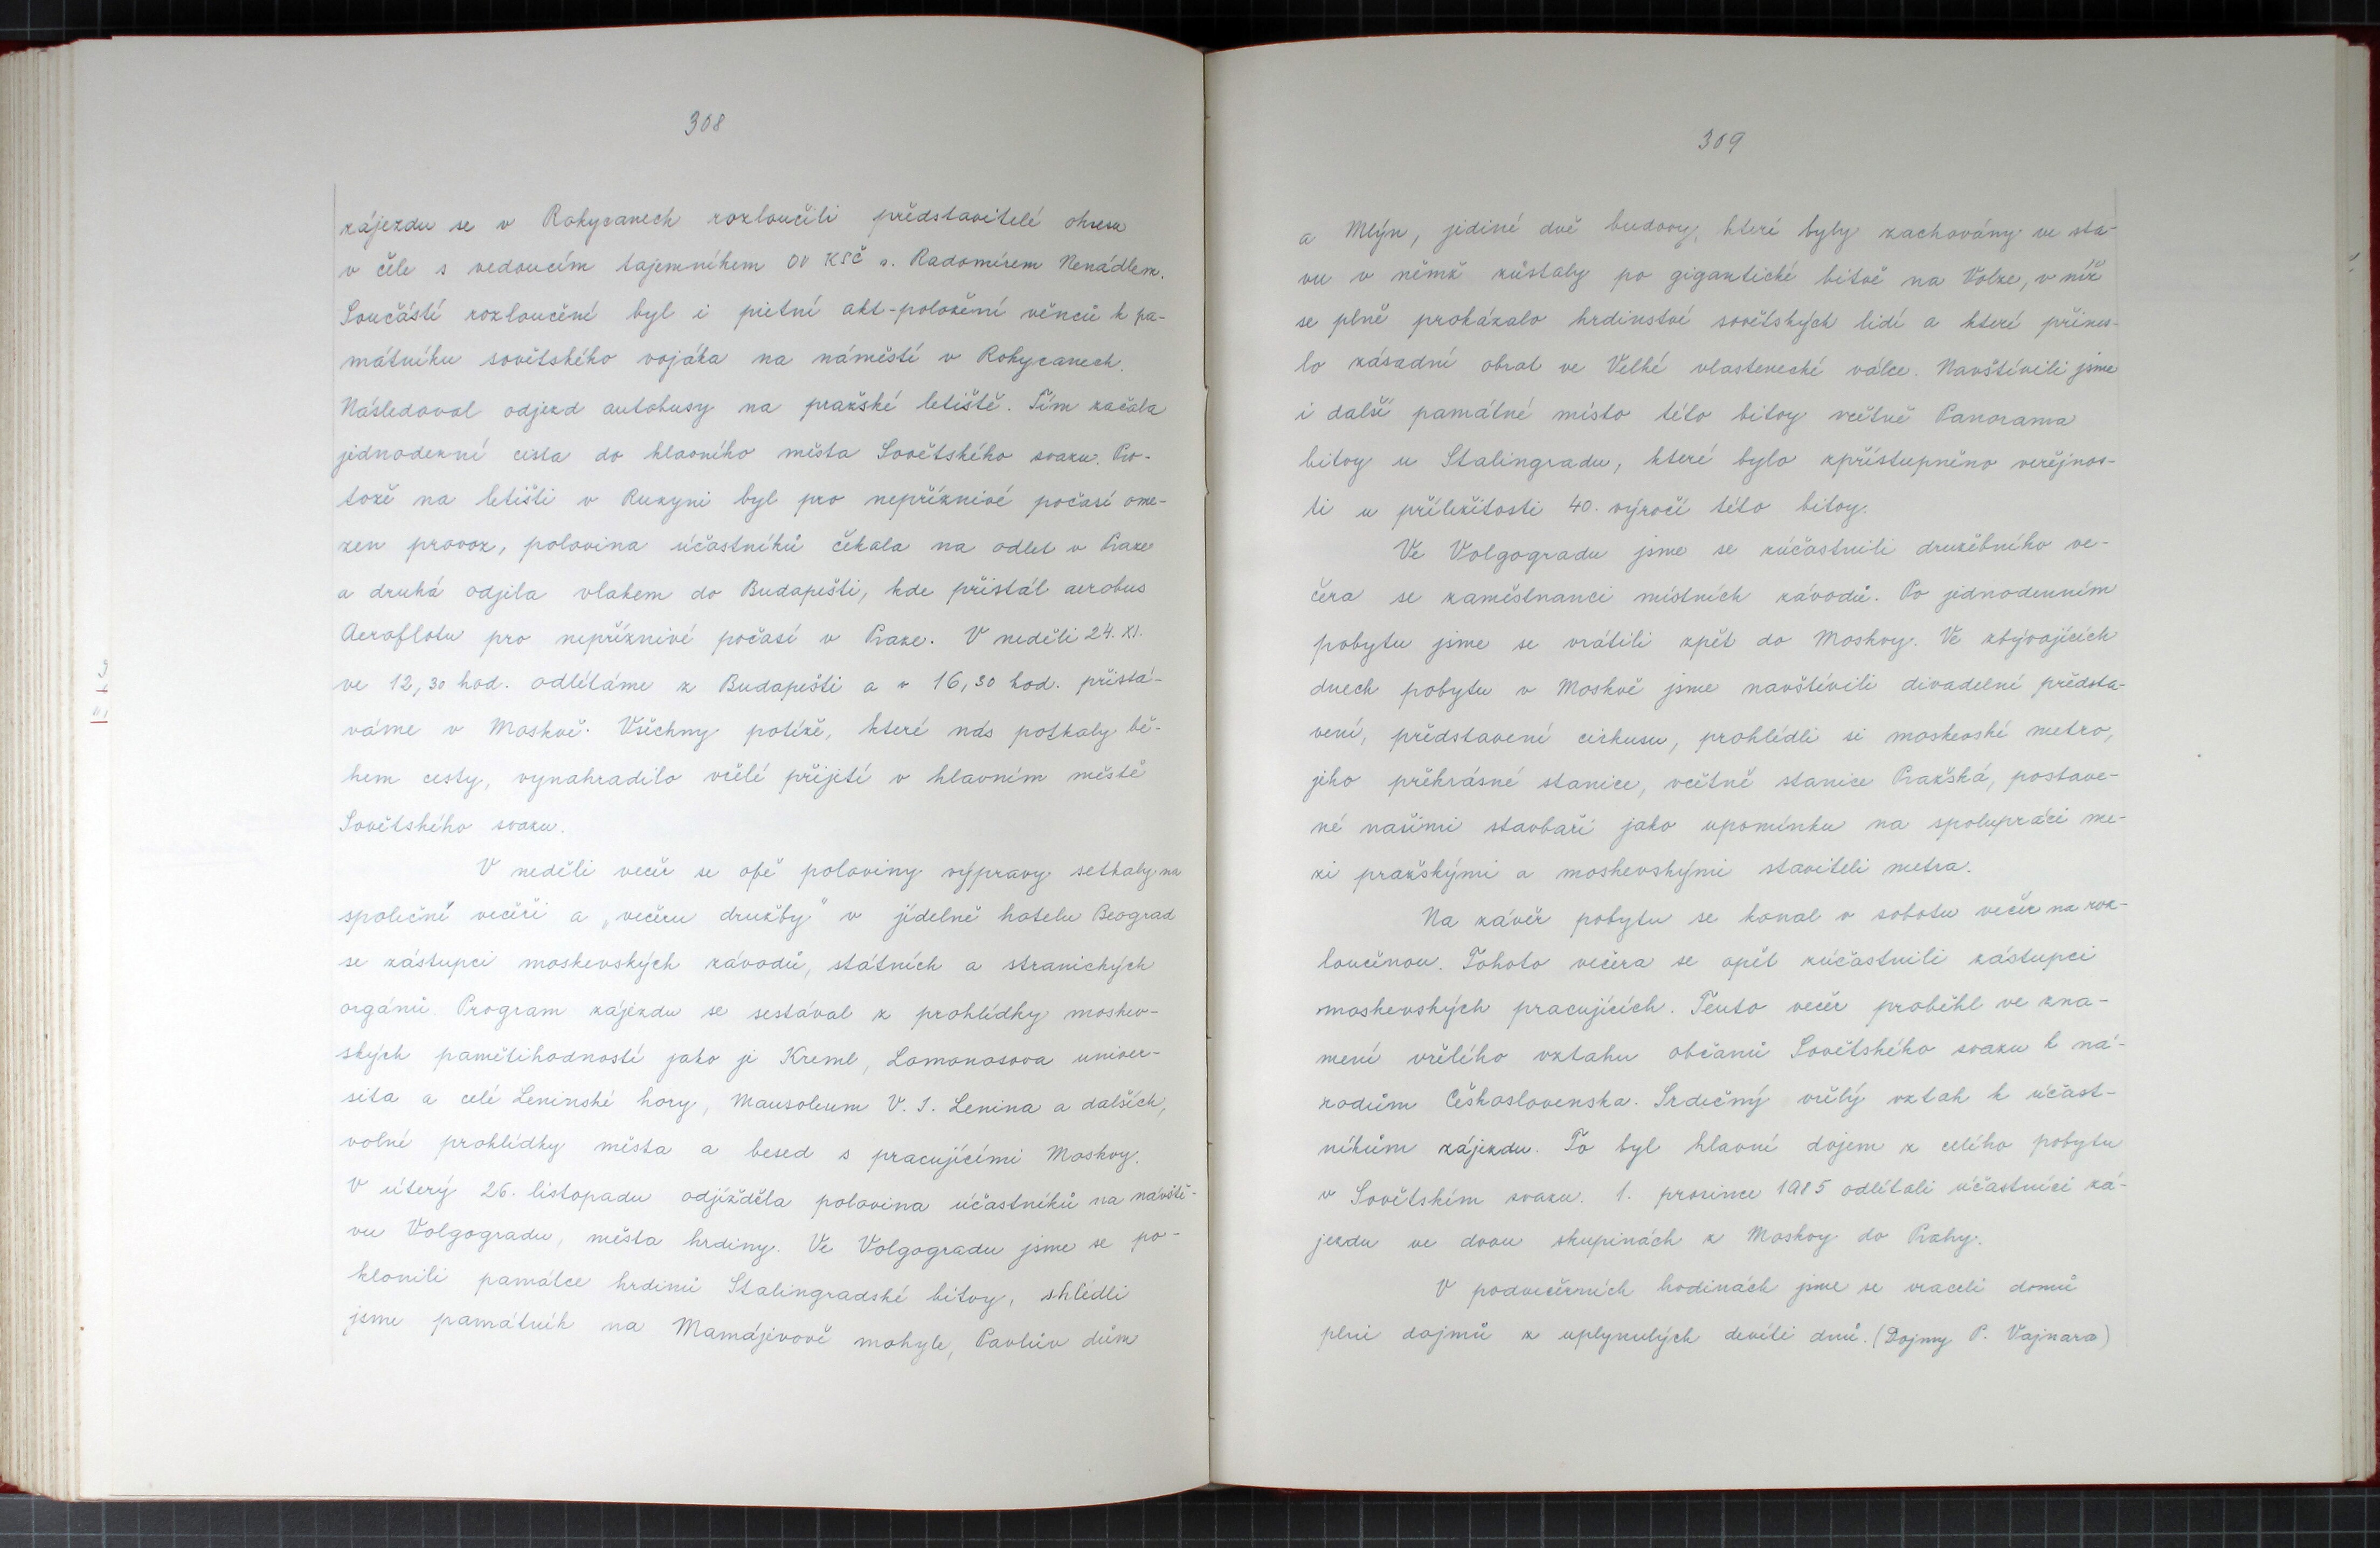 308
zájezdu se v Rokycanech rozloučili představitelé okresu
v čele s vedoucím tajemníkem OV KSČ s. Radomírem Nenádlem.
Součástí rozloučení byl i pietní akt-položení věnců k pa-
mátníku sovětského vojáka na náměstí v Rokycanech.
Následoval odjezd autobusy na pražské letiště. Tím začala
jednodenní cesta do hlavního města Sovětského svazu. Pro-
tože na letišti v Ruzyni byl pro nepříznivé počasí ome-
zen provoz, polovina účastníků čekala na odlet v Praze
a druhá odjela vlakem do Budapešti, kde přistál aerobus
Aeroflotu pro nepříznivé počasí v Praze. V neděli 24. XI.
ve 12,30 hod. odlétáme z Budapešti a v 16,30 hod. přistá-
váme v Moskvě. Všechny potíže, které nás potkaly bě-
hem cesty, vynahradilo vřelé přijetí v hlavním městě
Sovětského svazu.
V neděli večer se obě poloviny výpravy setkaly na
společné večeři a „večeru družby" v jídelně hotelu Beograd
se zástupci moskevských závodů, státních a stranických
orgánů. Program zájezdu se sestával z prohlídky moskev-
ských pamětihodností jako je Kreml, Lomonosova univer-
sita a celé Leninské hory, Mausoleum V. I. Lenina a dalších,
volné prohlídky města a besed s pracujícími Moskvy.
V úterý 26. listopadu odjížděla polovina účastníků na návště-
vu Volgogradu, města hrdiny. Ve Volgogradu jsme se po-
klonili památce hrdinů Stalingradské bitvy, shlédli
jsme památník na Mamájevově mohyle, Pavlův dům
309
a Mlýn, jediné dvě budovy, které byly zachovány ve sta-
vu v němž zůstaly po gigantické bitvě na Volze, v níž
se plně prokázalo hrdinství sovětských lidí a které přines-
lo zásadní obrat ve Velké vlastenecké válce. Navštívili jsme
i další památné místo této bitvy včetně Panorama
bitvy u Stalingradu, které bylo zpřístupněno veřejnos-
ti u příležitosti 40. výročí této bitvy.
Ve Volgogradu jsme se zúčastnili družebního ve-
čera se zaměstnanci místních závodů. Po jednodenním
pobytu jsme se vrátili zpět do Moskvy. Ve zbývajících
dnech pobytu v Moskvě jsme navštívili divadelní předsta-
vení, představení cirkusu, prohlédli si moskevské metro,
jeho překrásné stanice, včetně stanice Pražská, postave-
né našimi stavbaři jako upomínku na spolupráci me-
zi pražskými a moskevskými staviteli metra.
Na závěr pobytu se konal v sobotu večer na roz-
loučenou. Tohoto večera se opět zúčastnili zástupci
moskevských pracujících. Tento večer proběhl ve zna-
mení vřelého vztahu občanů Sovětského svazu k ná-
rodům Československa. Srdečný vřelý vztah k účast-
níkům zájezdu. To byl hlavní dojem z celého pobytu
v Sovětském svazu. 1. prosince 1985 odlétali účastníci zá-
jezdu ve dvou skupinách z Moskvy do Prahy.
V podvečerních hodinách jsme se vraceli domů
plni dojmů z uplynulých devíti dnů. (Dojmy P. Vajnara)